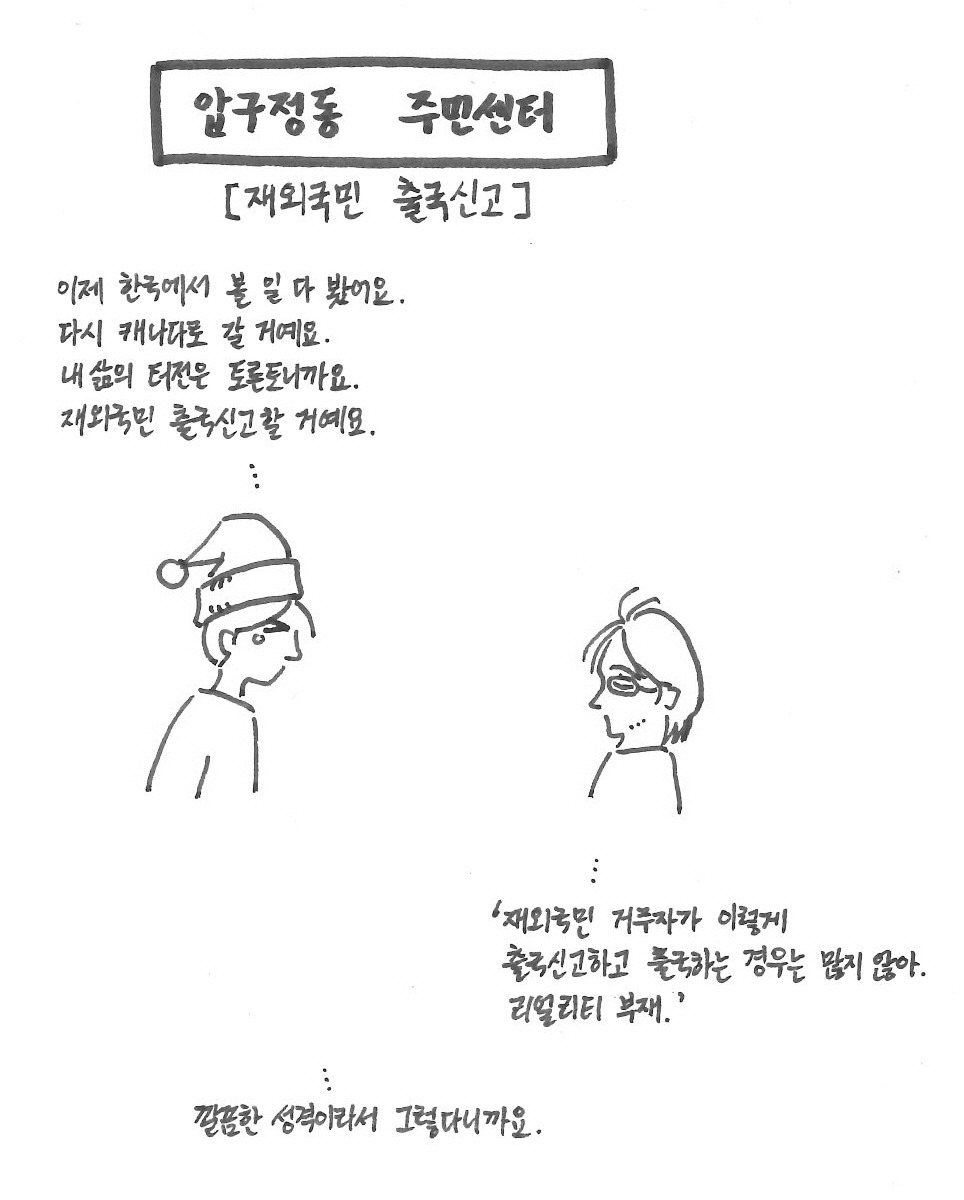 압구정동 주민센터
[재외국민 출국신고]
이제 한국에서 볼 일 다 봤어요.
다시 캐나다로 갈 거예요.
내 삶의 터전은 토론토니까요.
재외국민 출국신고할 거예요.
'재외국민 거주자가 이렇게
출국신고하고 출국하는 경우는 많지 않아.
리얼리티 부재.'
깔끔한 성격이라서 그렇다니까요.